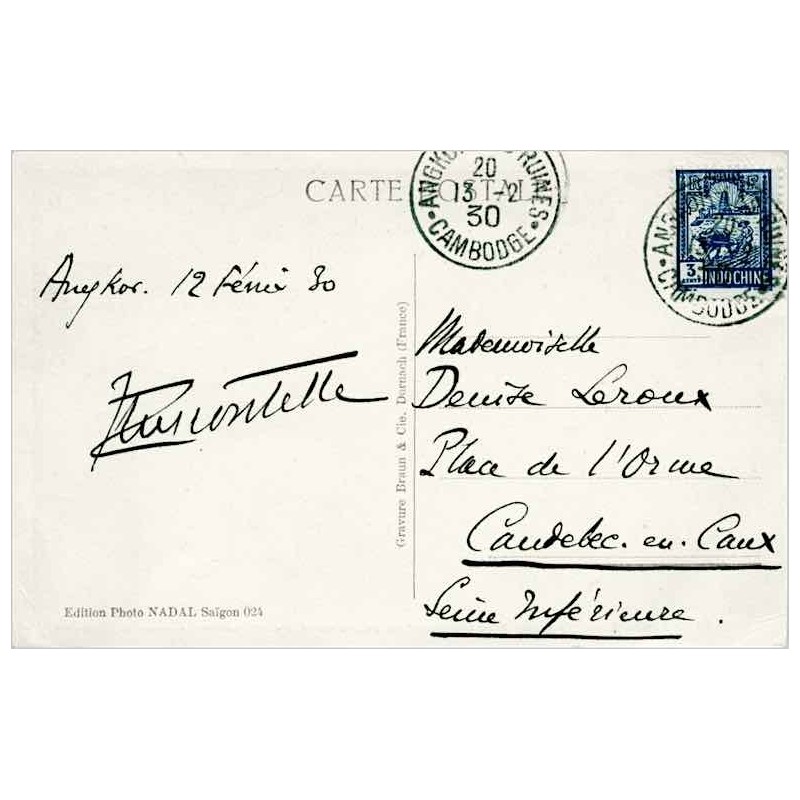 CARTE POSTALE
ANGKOR RUINES
20
13 -2
30
CAMBODGE
3
CENTS
INDOCHINE
CAMBODGE
Angkor. 12 Févri 30
Mademoiselle
Denise Leroux
Place de l'Orme
Caudebec-en-Caux
Seine Inférieure.
Gravure Braun & Cie, Dornach (France)
Edition Photo NADAL Saïgon 024